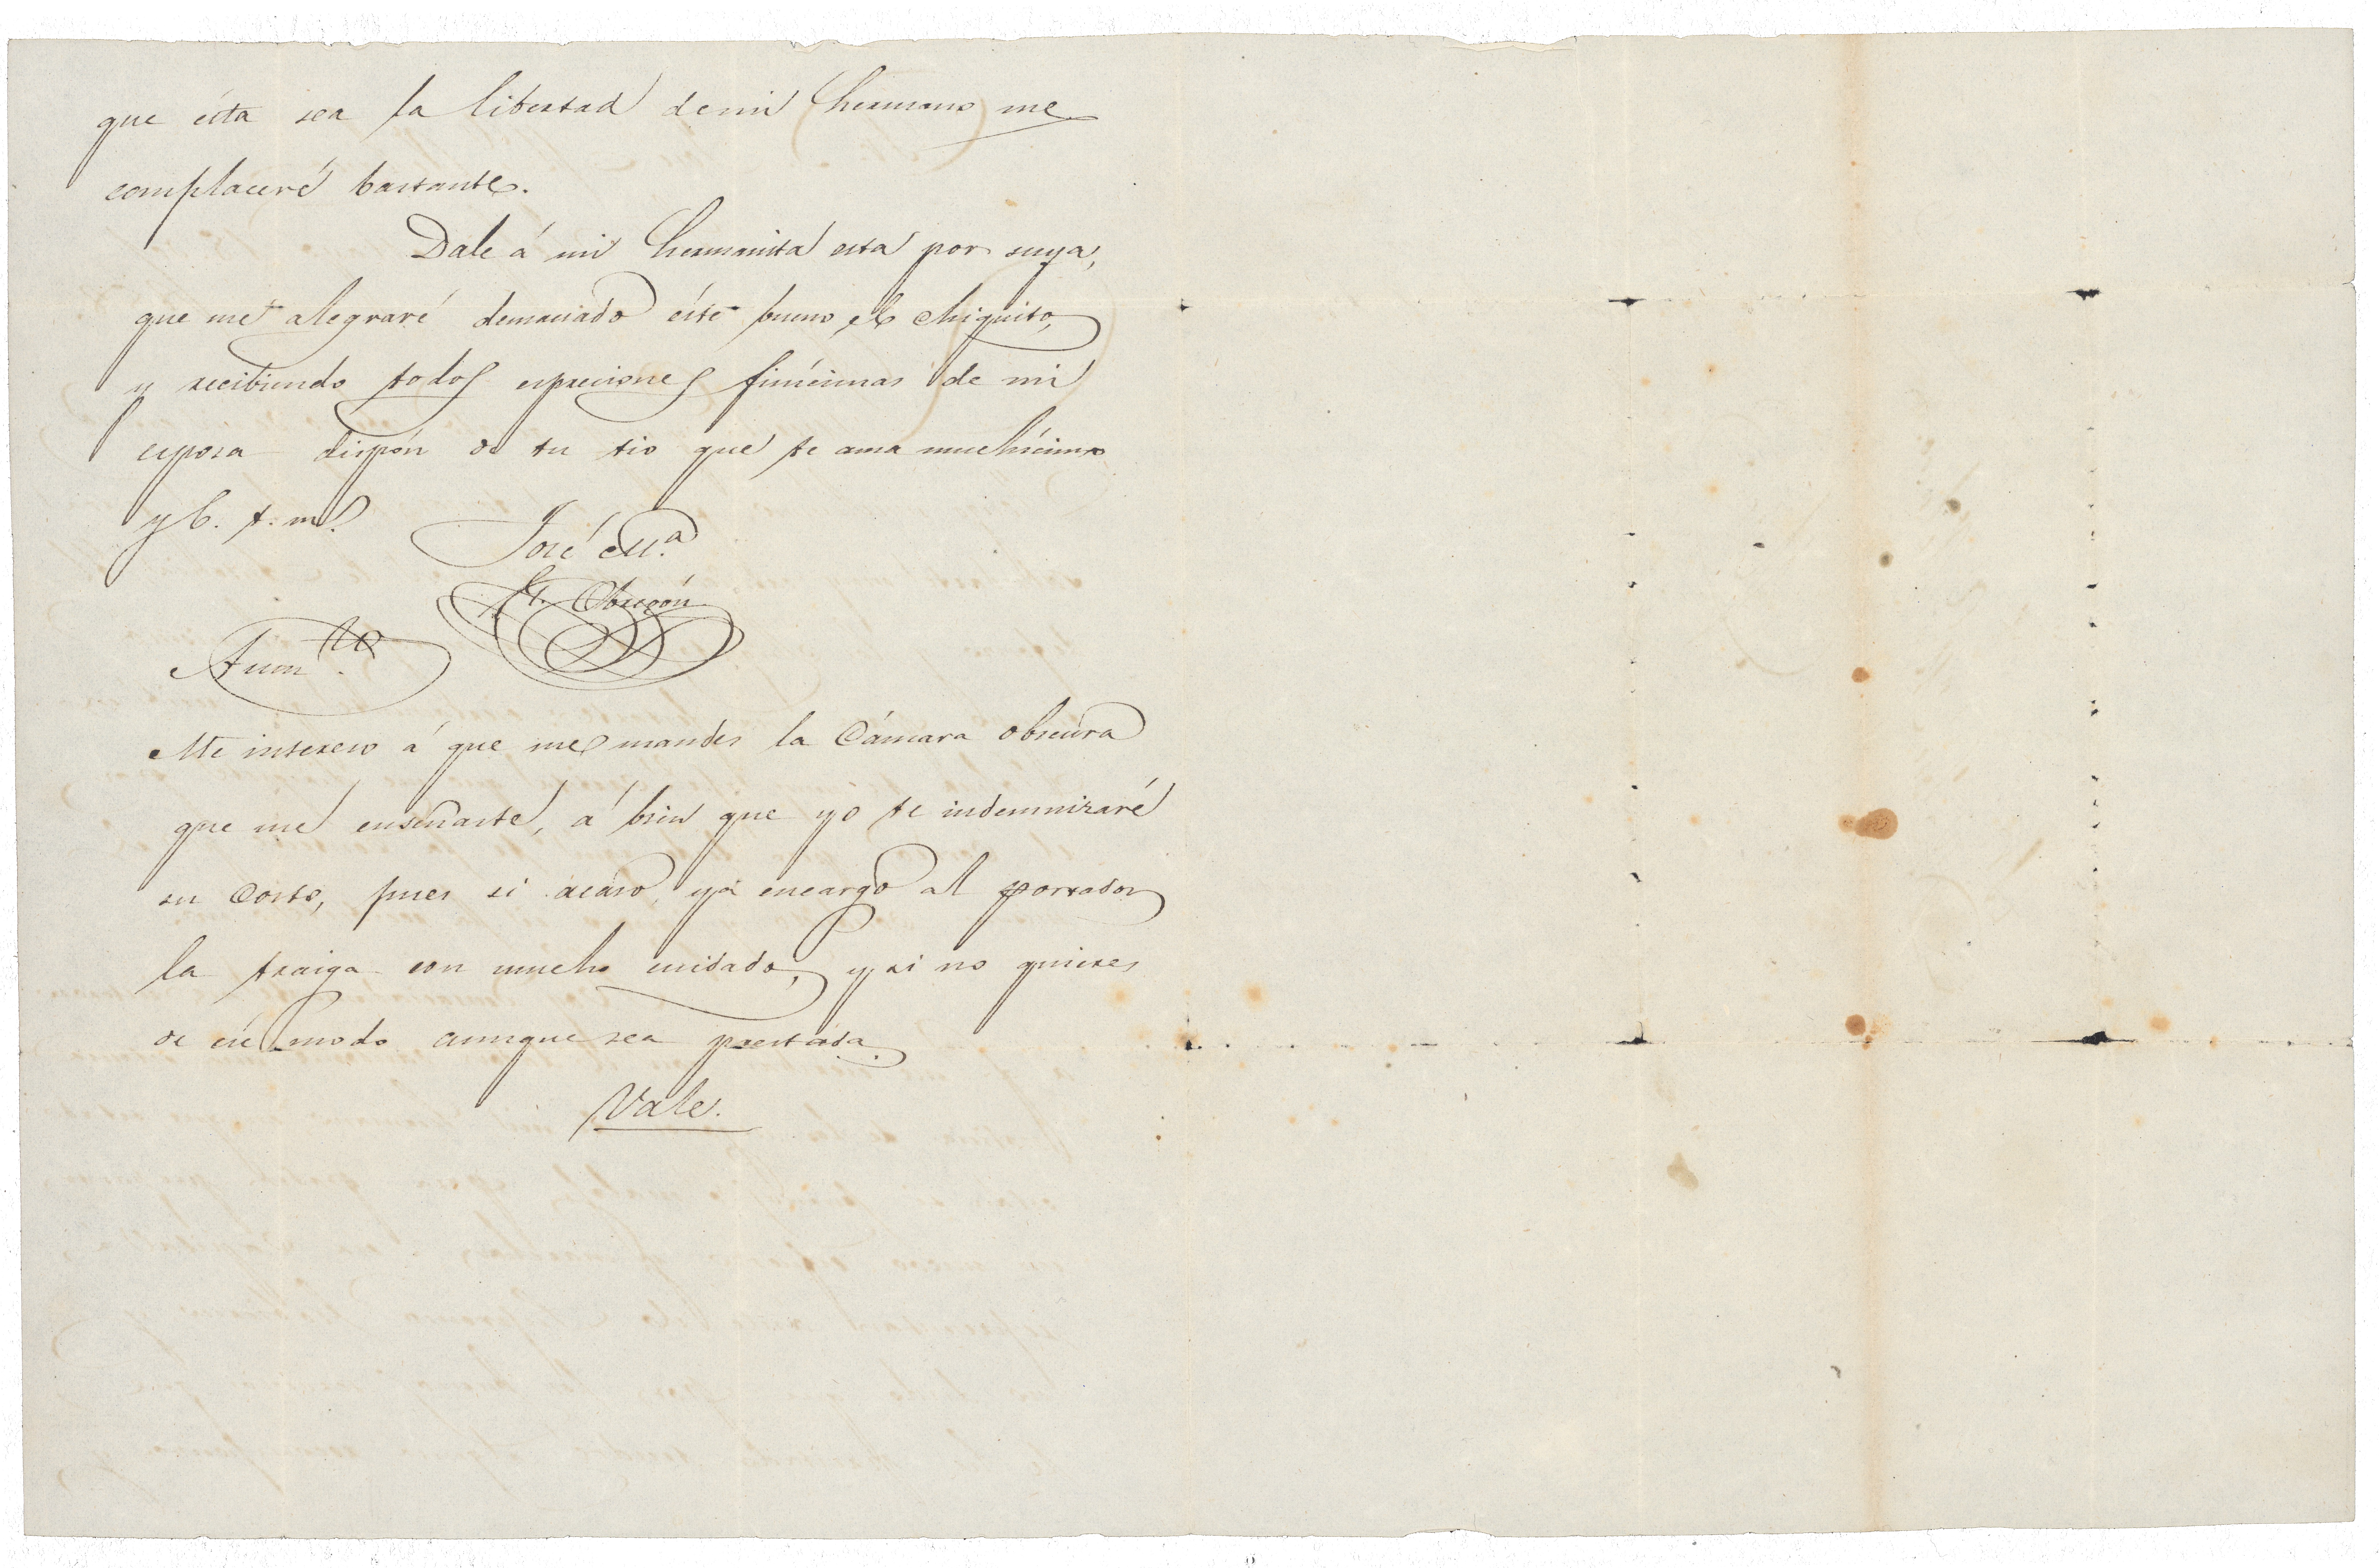 que ésta sea la libertad de mi hermano me
complaceré bastante.
Dale á mi hermanita esta por suya,
que me alegraré demaciado ésté bueno el chiquito,
y recibiendo todos espreciones finícimas de mi
esposa dispón de tu tio que te ama muchícimo
y b. t. m.
José M.a
G. Obregón
Aum.to
Me intereso á que me mandes la Cámara obscura
que me enseñaste, á bien que yo te indemnizaré
su costo, pues si acaso, yá encargo al portador
la traiga con mucho cuidado, y si no quieres
de ese modo aunque sea prestada.
Vale.